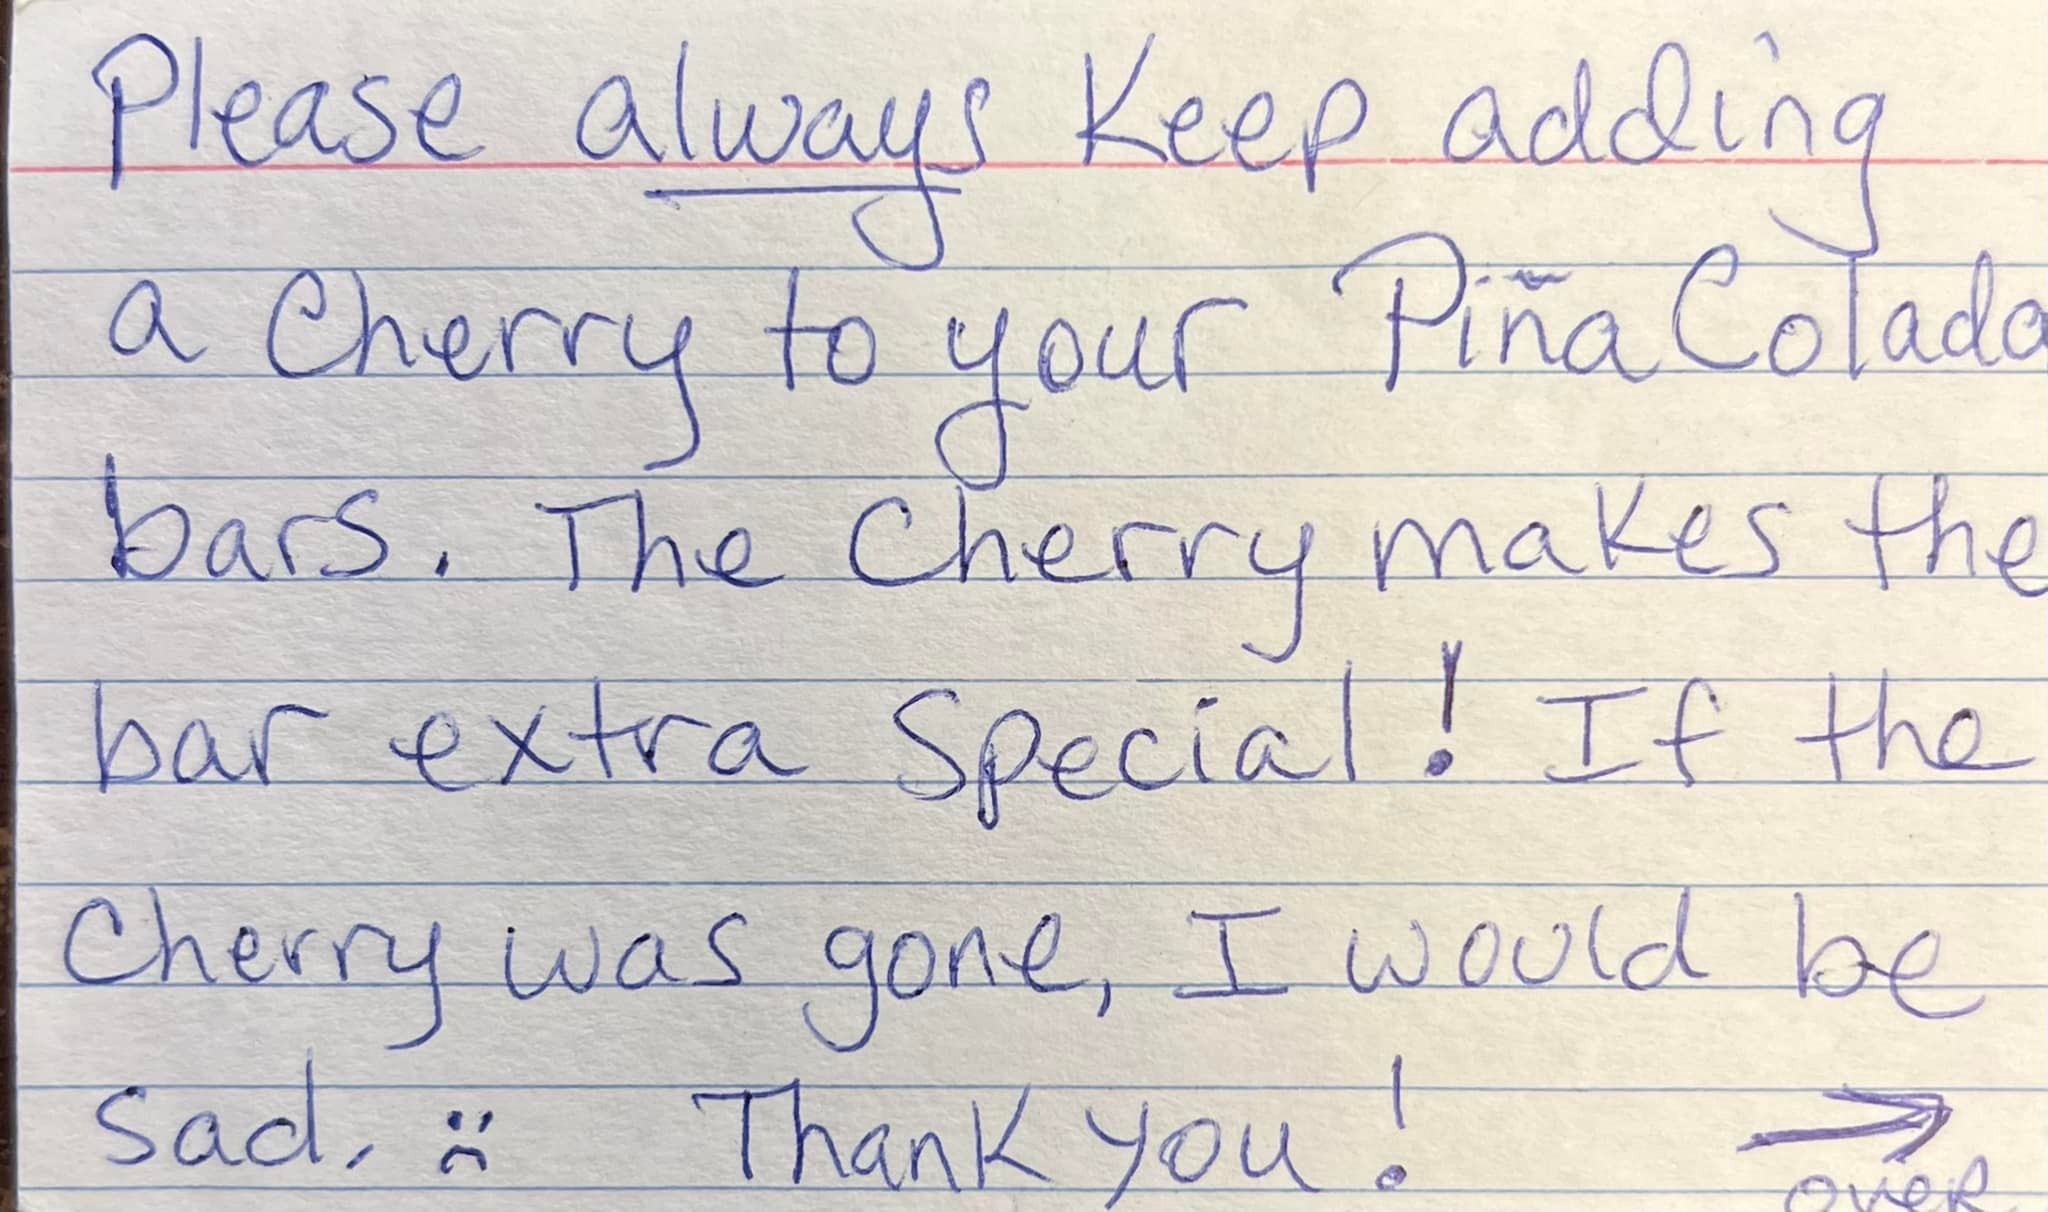 Please always Keep adding
a Cherry to your Piña Colada
bars. The Cherry makes the
bar extra Special! If the
Cherry was gone, I would be
Sad. :( Thank you! →
over